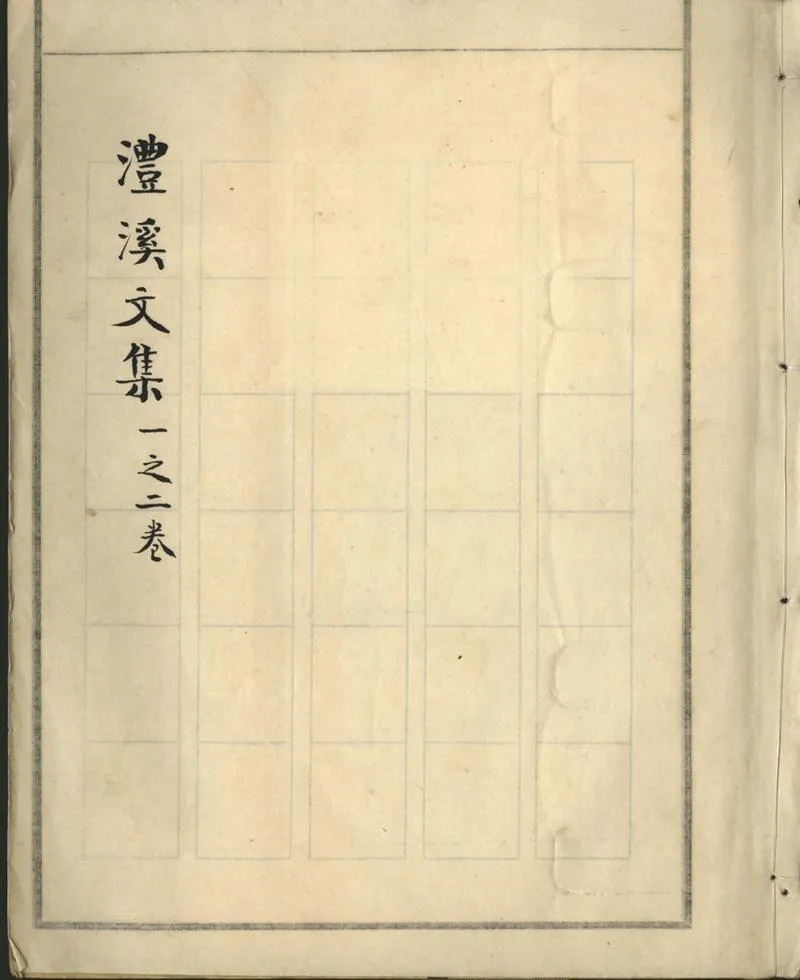 澧溪文集一之二卷